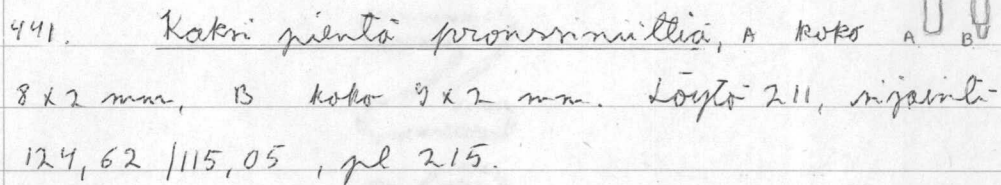 441. Kaksi pientä pronssiniittiä, A koko A B
8 x 2 mm, B koko 9 x 2 mm. Löytö 211, sijainti
124,62 / 115,05, pl 215.